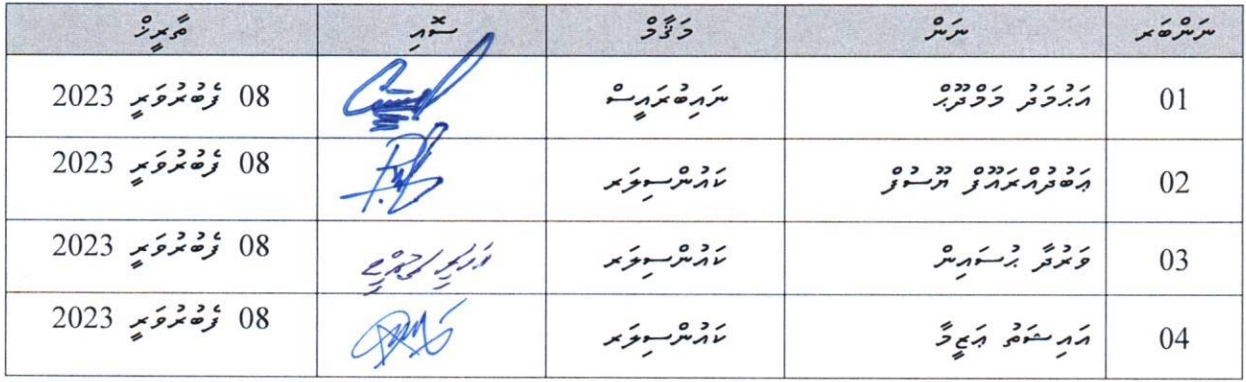 ނަންބަރ ނަން މަޤާމް ސޮއި ތާރީޚް
01 އަޙުމަދު މަމްދޫޙް ނައިބުރައީސް 08 ފެބުރުވަރީ 2023
02 ޢަބުދުއްރައޫފް ޔޫސުފް ކައުންސިލަރ 08 ފެބުރުވަރީ 2023
03 ވަރުދާ ޙުސައިން ކައުންސިލަރ 08 ފެބުރުވަރީ 2023
04 އައިޝަތު ޢަޒީމާ ކައުންސިލަރ 08 ފެބުރުވަރީ 2023